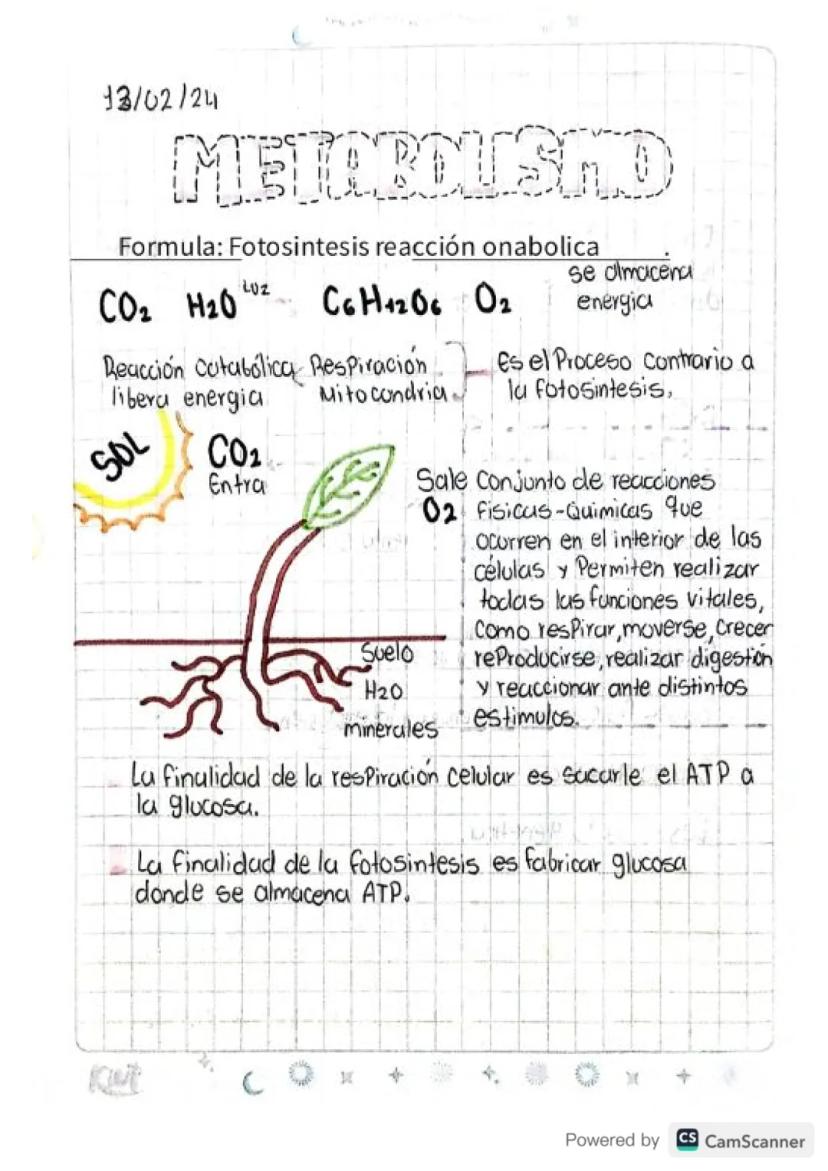 13/02/24
METABOLISMO
Formula: Fotosintesis reacción onabolica .
CO₂ H₂O ᴸᵁᶻ C₆H₁₂O₆ O₂ se almacena
energia
Reacción catabólica Respiración Es el Proceso contrario a
libera energia Mitocondria la fotosintesis.
SOL CO₂
Entra
Sale Conjunto de reacciones
O₂ fisicas-Quimicas que
ocurren en el interior de las
células y Permiten realizar
todas las funciones vitales,
como resPirar, moverse, crecer
Suelo reProducirse, realizar digestión
H₂O y reaccionar ante distintos
minerales estimulos.
La finalidad de la resPiración celular es sacarle el ATP a
la glucosa.
La finalidad de la fotosintesis es fabricar glucosa
donde se almacena ATP.
Powered by CS CamScanner